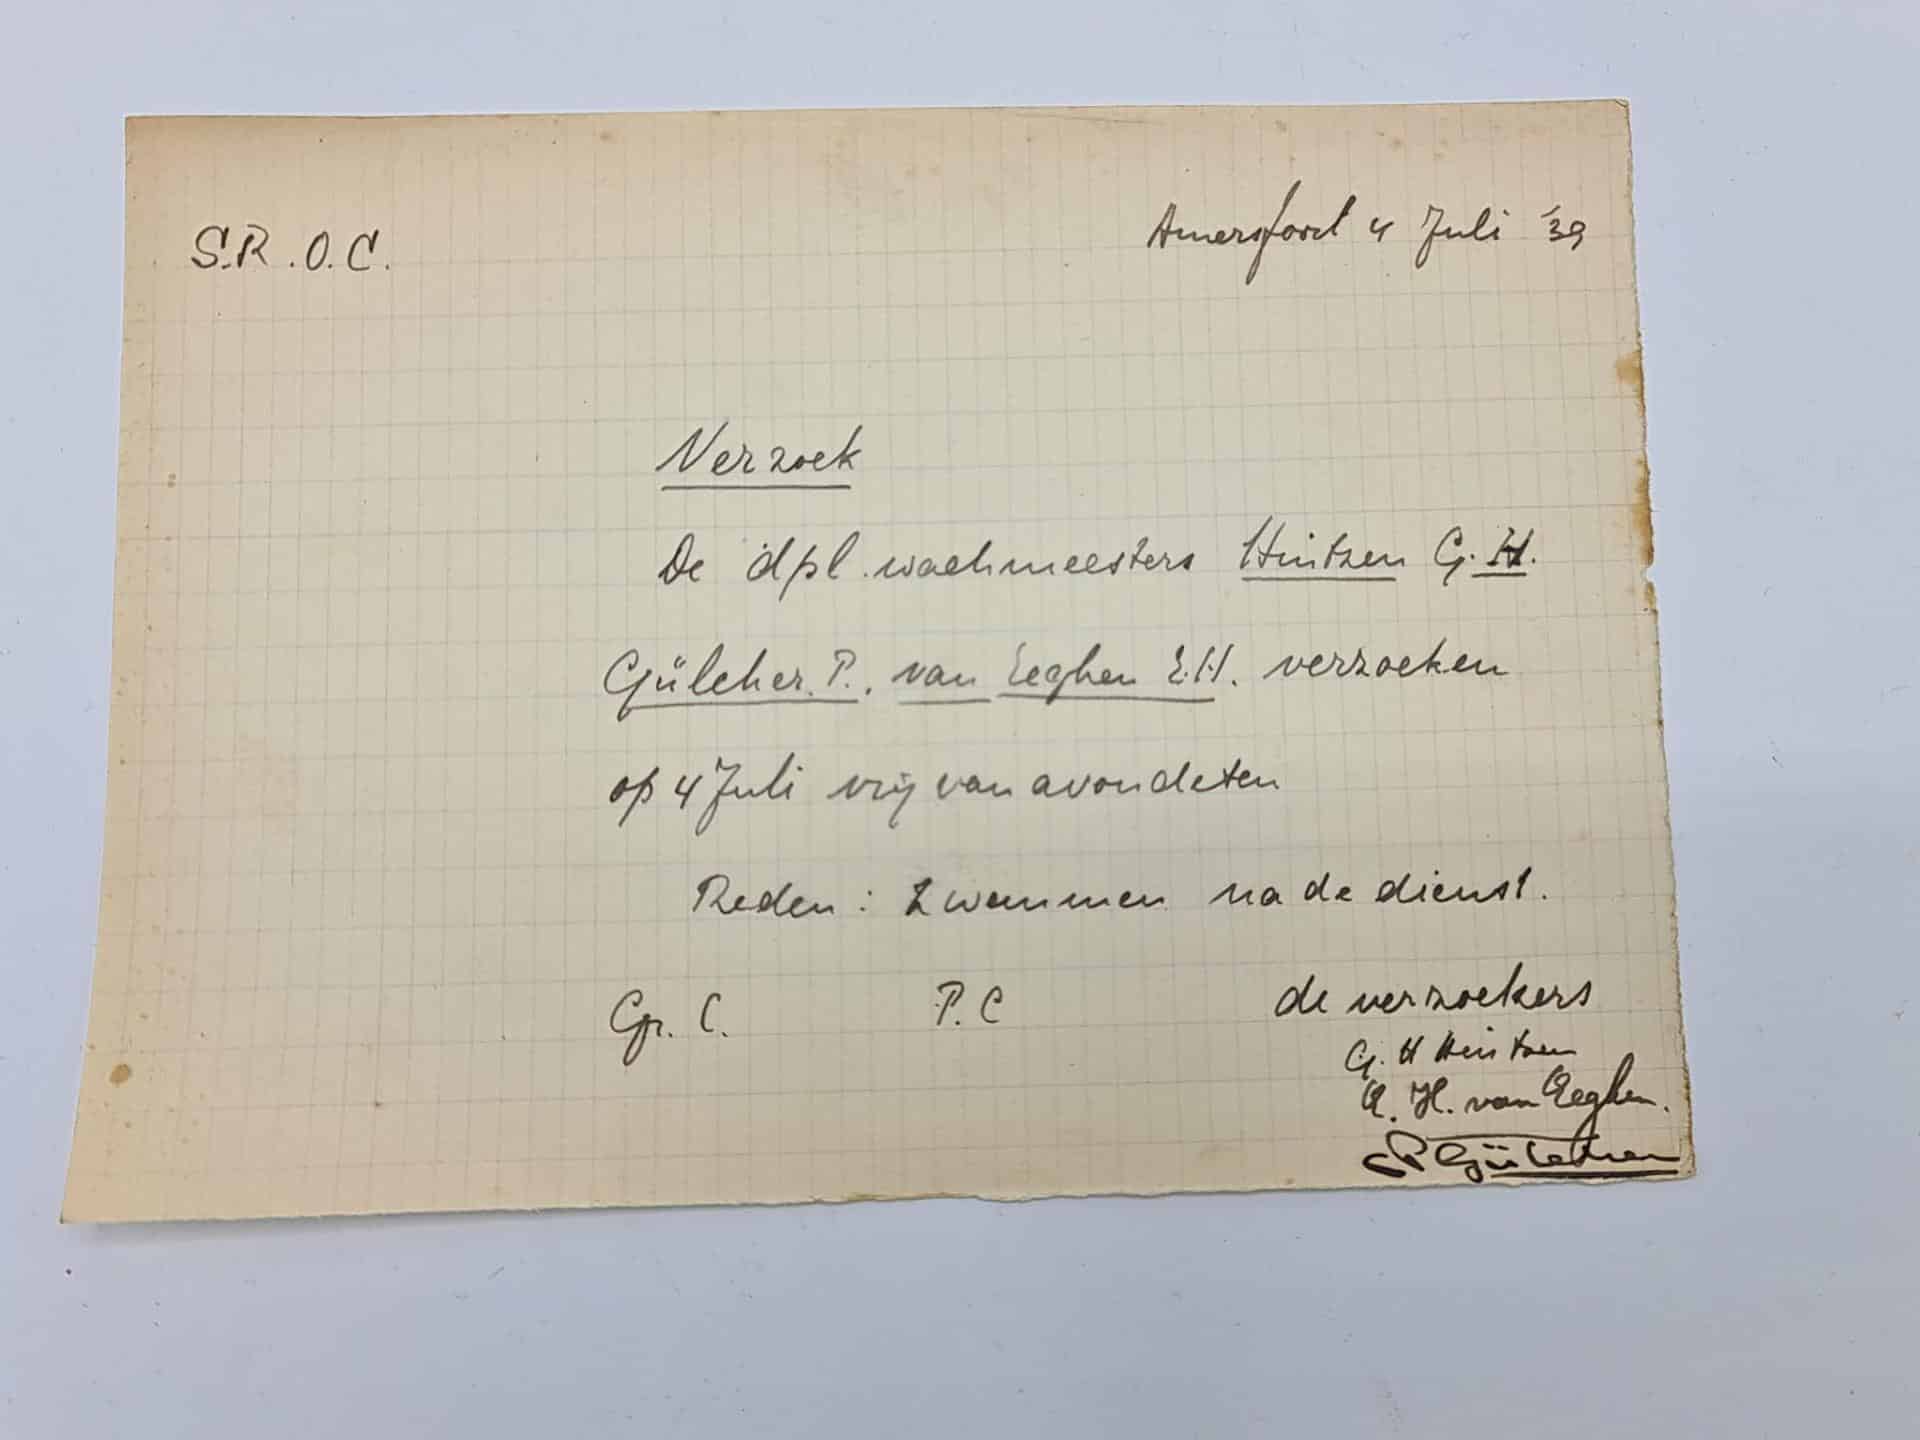 S.R.O.C.
Amersfoort 4 Juli '39
Verzoek
De dpl. wachmeesters Hintzen G.H.
Gülcher P., van Eeghen E.H. verzoeken
op 4 Juli vrij van avondeten
Reden: zwemmen na de dienst.
Gr. C. P.C de verzoekers
G. H Hintzen
E. H. van Eeghen.
P Gülcher